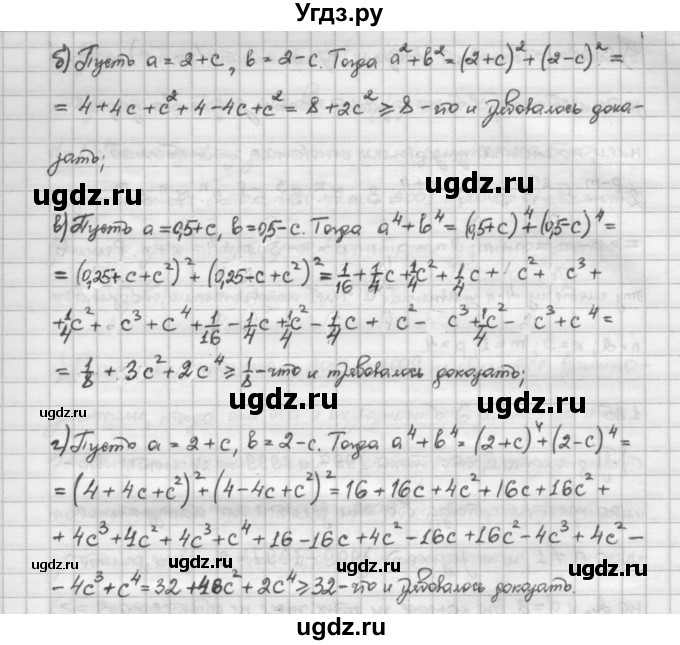 Угдз.ру
б) Пусть a = 2+c, b = 2-c. Тогда a² + b² = (2+c)² + (2-c)² =
= 4 + 4c + c² + 4 - 4c + c² = 8 + 2c² ⩾ 8 - что и требовалось дока-
зать;
ugdz.ru ugdz.ru
в) Пусть a = 0,5+c, b = 0,5-c. Тогда a⁴ + b⁴ = (0,5+c)⁴ + (0,5-c)⁴ =
= (0,25 + c + c²)² + (0,25 - c + c²)² = 1/16 + 1/4c + 1/4c² + 1/4c + c² + c³ +
+ 1/4c² + c³ + c⁴ + 1/16 - 1/4c + 1/4c² - 1/4c + c² - c³ + 1/4c² - c³ + c⁴ =
= 1/8 + 3c² + 2c⁴ ⩾ 1/8 - что и требовалось доказать;
ugdz.ru ugdz.ru ugdz.ru
г) Пусть a = 2 + c, b = 2 - c. Тогда a⁴ + b⁴ = (2+c)⁴ + (2-c)⁴ =
= (4 + 4c + c²)² + (4 - 4c + c²)² = 16 + 16c + 4c² + 16c + 16c² +
+ 4c³ + 4c² + 4c³ + c⁴ + 16 - 16c + 4c² - 16c + 16c² - 4c³ + 4c² -
ugdz.ru ugdz.ru
- 4c³ + c⁴ = 32 + 48c² + 2c⁴ ⩾ 32 - что и требовалось доказать.
ugdz.ru ugdz.ru
ugdz.ru